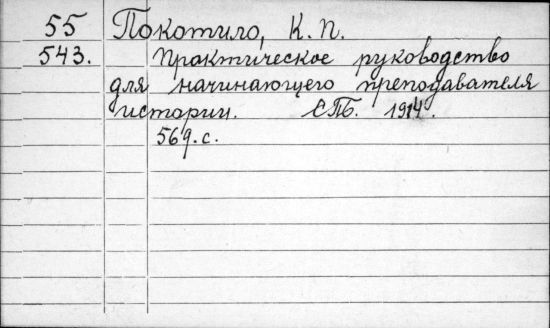 55 Покотило, К. П.
543. Практическое руководство
для начинающего преподавателя
истории. СПБ. 1914.
569. с.